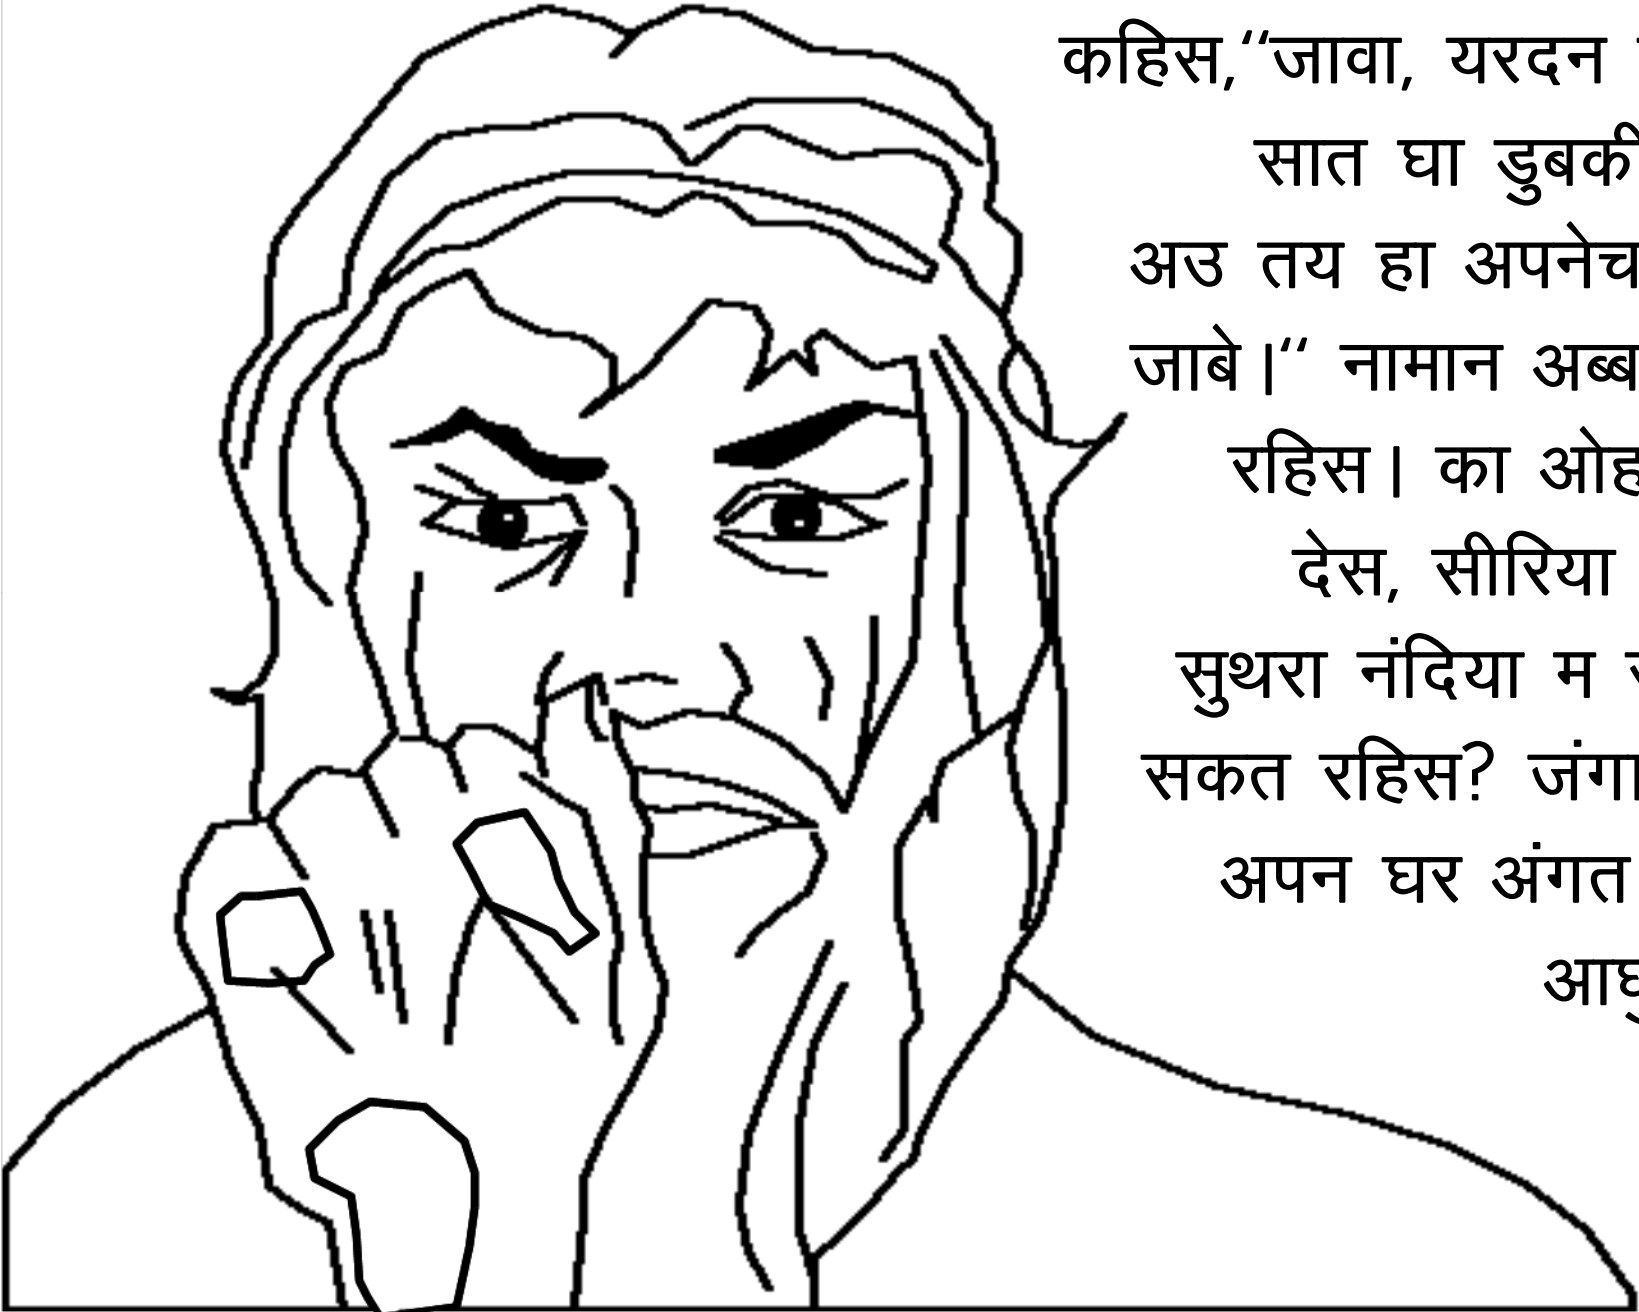 कहिस,“जावा, यरदन
सात घा डुबकी
अउ तय हा अपनेच
जाबे।“ नामान
रहिस। का
देस, सीरिया
सुथरा नंदिया म
सकत रहिस?
अपन घर अंगत